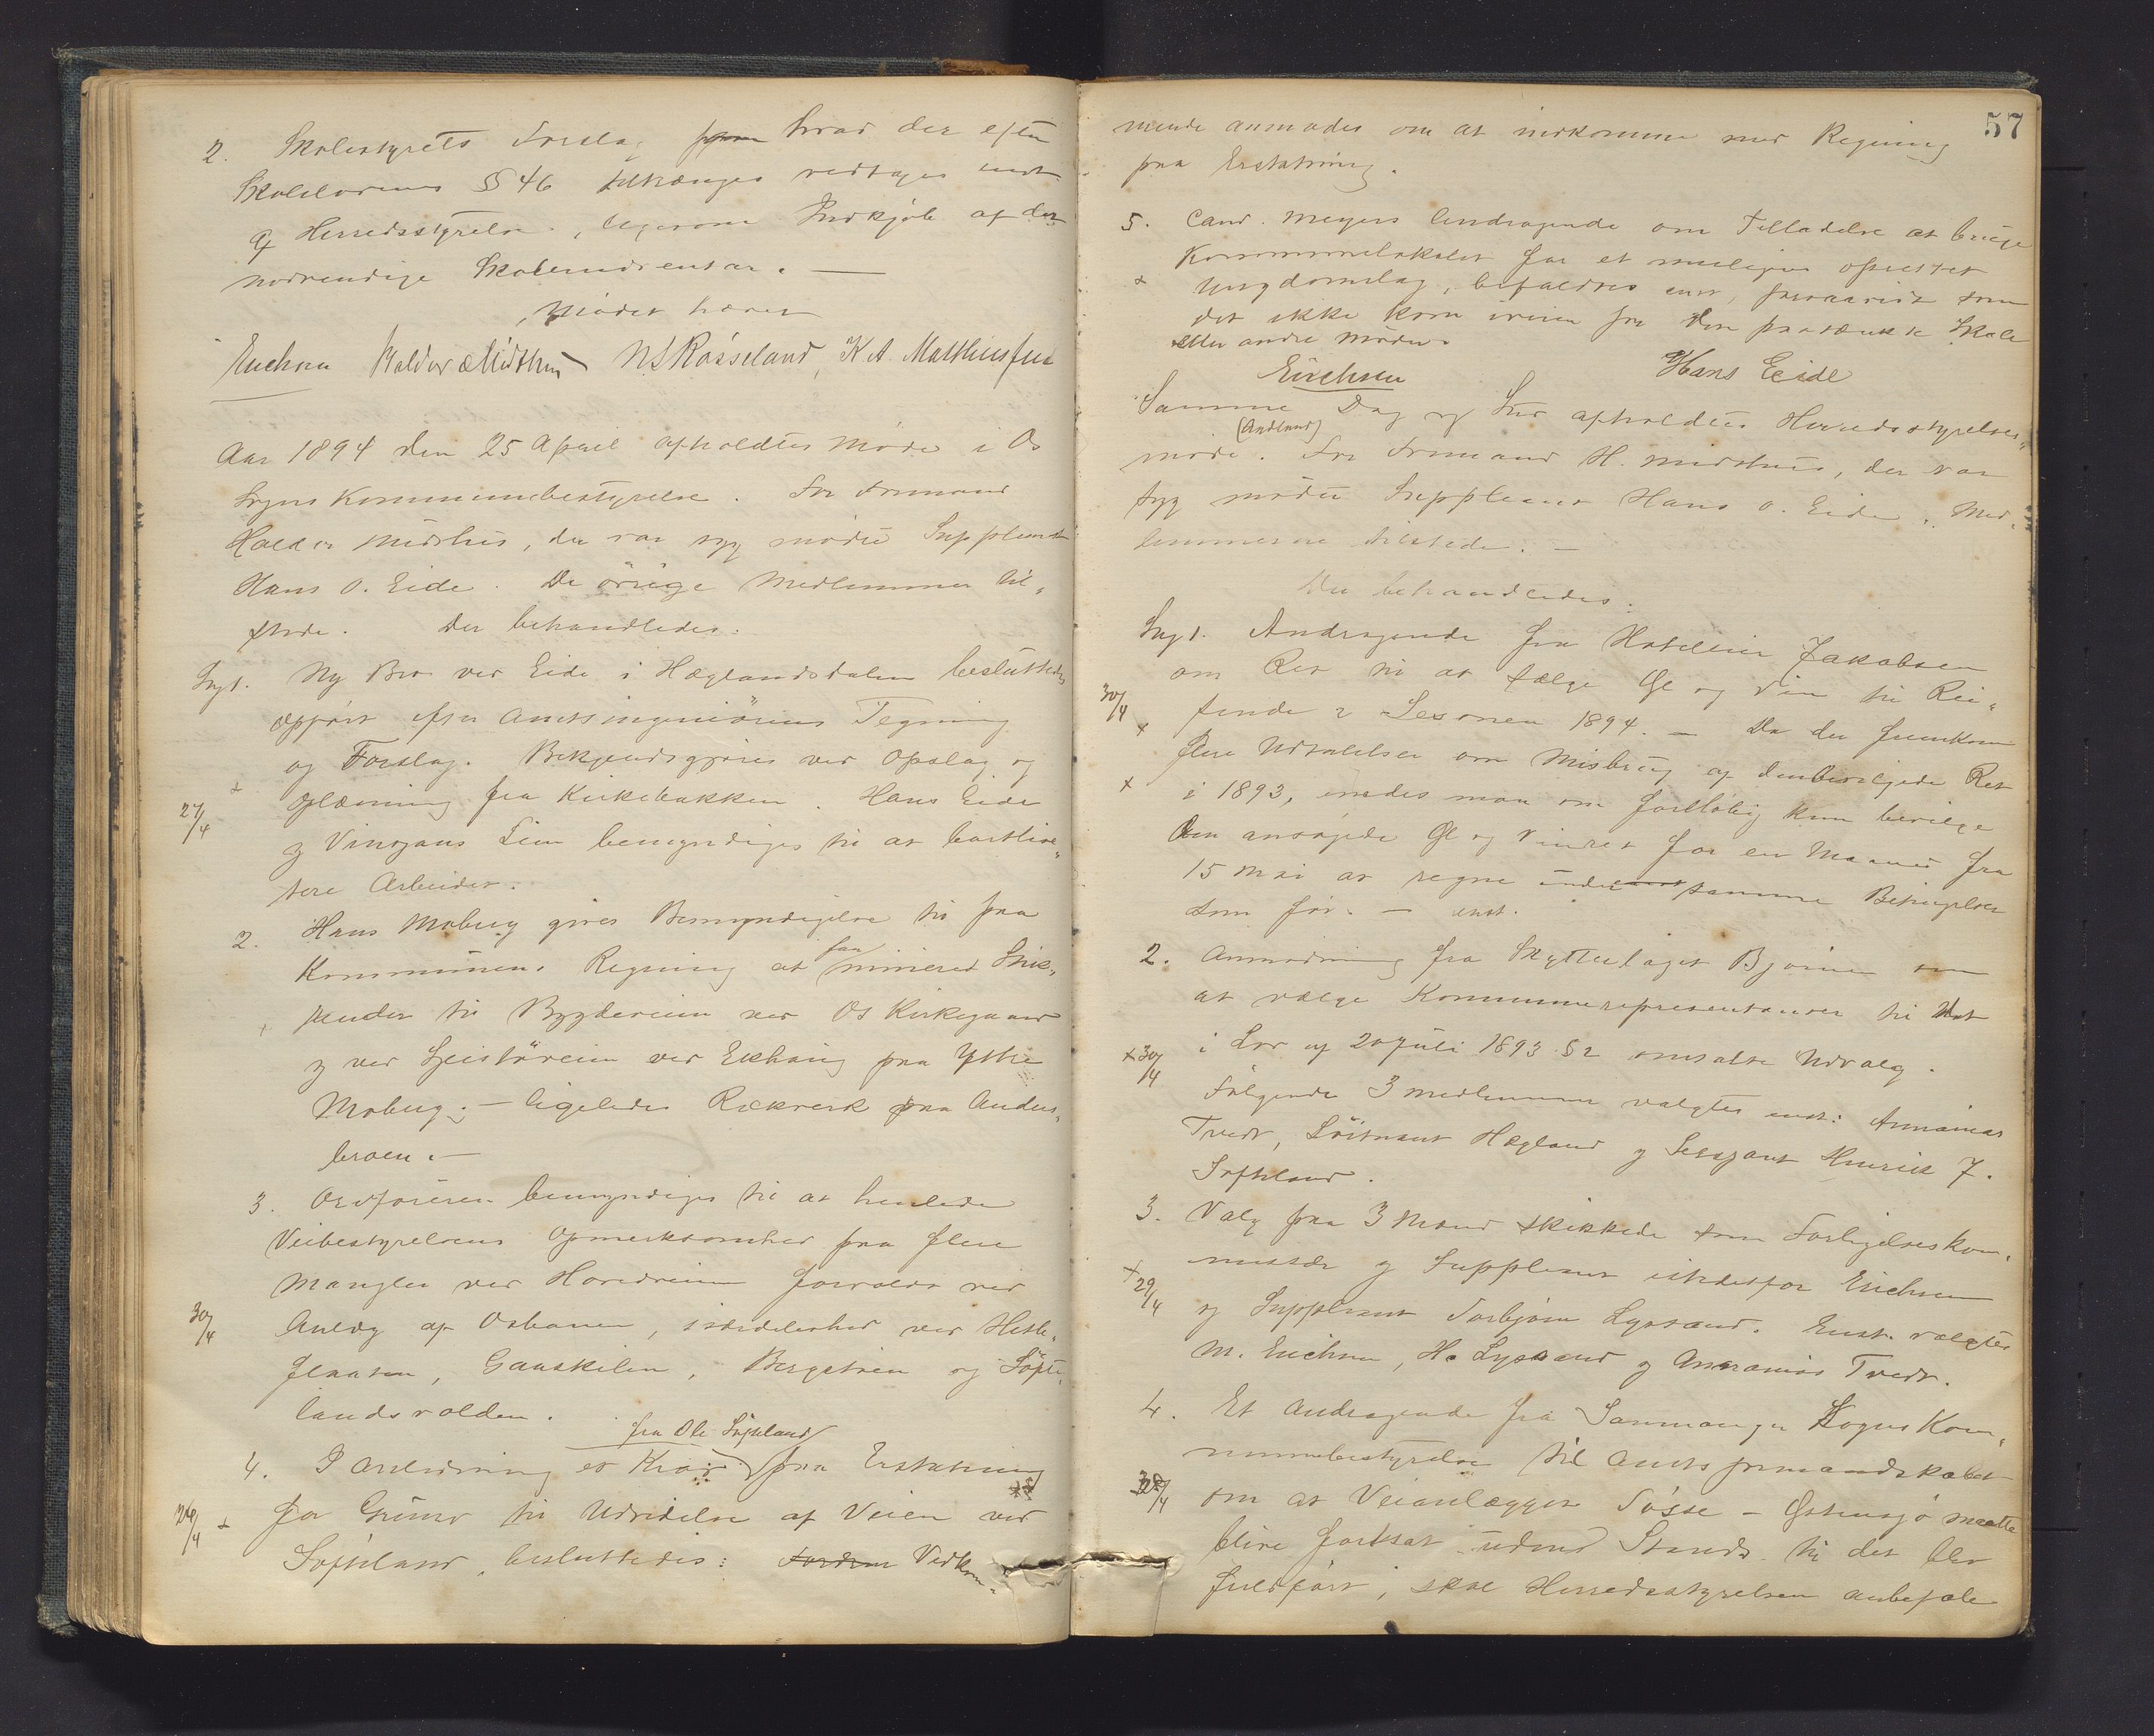 2. Skolestyrets Forslag hvad der efter
Skolelovens §§ 46 tiltrænges vedtages enst.
af Herredsstyrelsen, ligesom Indkjöb af det
nødvendige Skoleinventar. —
Mødet hævet
Erichsen Haldor Midthus N S Røsseland, K A. Matthiesen
Aar 1894 den 25 April afholdtes Møde i Os
Sogns Kommunebestyrelse. For Formand
Haldor Midthus, der var syg mødte Suppleant
Hans O. Eide. De øvrige Medlemmer til-
stede. Der behandledes:
Sag 1. Ny Bro ved Eide i Hæglandsdalen besluttedes
opført efter Amtsingeniörens Tegning
og Forslag. Bekjendtgjøres ved Opslag og
27/4 + Oplæsning fra Kirkebakken. Hans Eide
og Vinsjans Lien bemyndiges til at bortlici-
tere Arbeidet.
2. Hans Moberg gives Bemyndigelse til paa
Kommunens Regning at faa mineret Stik-
+ render til Bygdeveien ved Os Kirkegaard
og ved Leistöveien ved Ekhaug paa Ytre
Moberg; — ligeledes Rækverk paa Anders-
broen. —
3. Ordføreren bemyndiges til at henlede
Veibestyrelsens Opmerksomhed paa flere
Mangler ved Hovedveien forvoldt ved
30/4 Anlæg af Osbanen, isærdeleshed ved Hetle-
flaaten, Gaaskilen, Bergstøen og Söfte-
landsvolden.
fra Ole Söfteland
4. I Anledning et Krav paa Erstatning
26/4 + for Grund til Udvidelse af Veien ved
Søfteland, besluttedes: Fordrer Vedkom-
57
mende anmodes om at indkomme med Regning
paa Erstatning.
5. Cand. Meyers Andragende om Tilladelse at bruge
Kommunelokalet for et muligens oprettet
+ Ungdomslag, bifaldtes enst, forsaavidt som
det ikke kom iveien for den paatænkte Skole
eller andre Møder.
Erichsen Hans Eide
Samme Dag og Sted afholdtes Herredsstyrelses-
(Andlaug)
møde. For Formand H. Midthus, der var
syg mødte Suppleant Hans O. Eide. Med-
lemmerne tilstede. —
Der behandledes:
Sag 1. Andragende fra Hotelier Jakobsen
om Ret til at sælge Øl og Vin til Rei-
30/4 sende i Sesonen 1894. — Da der fremkom
+ flere Udtalelser om Misbrug af den bevilgede Ret
+ i 1893, enedes man om forelöbig kun bevilge
den ansøgede Øl og Vinret for en Maaned fra
15 Mai at regne under samme Betingelser
som før. — enst.
2. Anmodning fra Skytterlaget Bjørnen om
at vælge Kommunerepresentanter til det
+ 30/4 i Lov af 20 Juli 1893 § 2 omtalte Udvalg.
Følgende 3 Medlemmer valgtes enst: Annanias
Tvedt, Löitnant Hegland og Sersjant Henrik J.
Søfteland.
3. Valg paa 3 Mænd skikkede som Forligelseskom-
missær og Suppleant istedetfor Erichsen
+ 29/4 og Suppleant Torbjørn Lyssand. Enst. valgtes
M. Erichsen, H. Lyssand og Annanias Tvedt.
4. Et Andragende fra Samnanger Sogns Kom-
munebestyrelse til Amtsformandskabet
30/4 om at Veianlægget Tøsse - Østensjø maatte
blive fortsat uden Stands til det blev
fuldført, skal Herredsstyrelsen anbefale